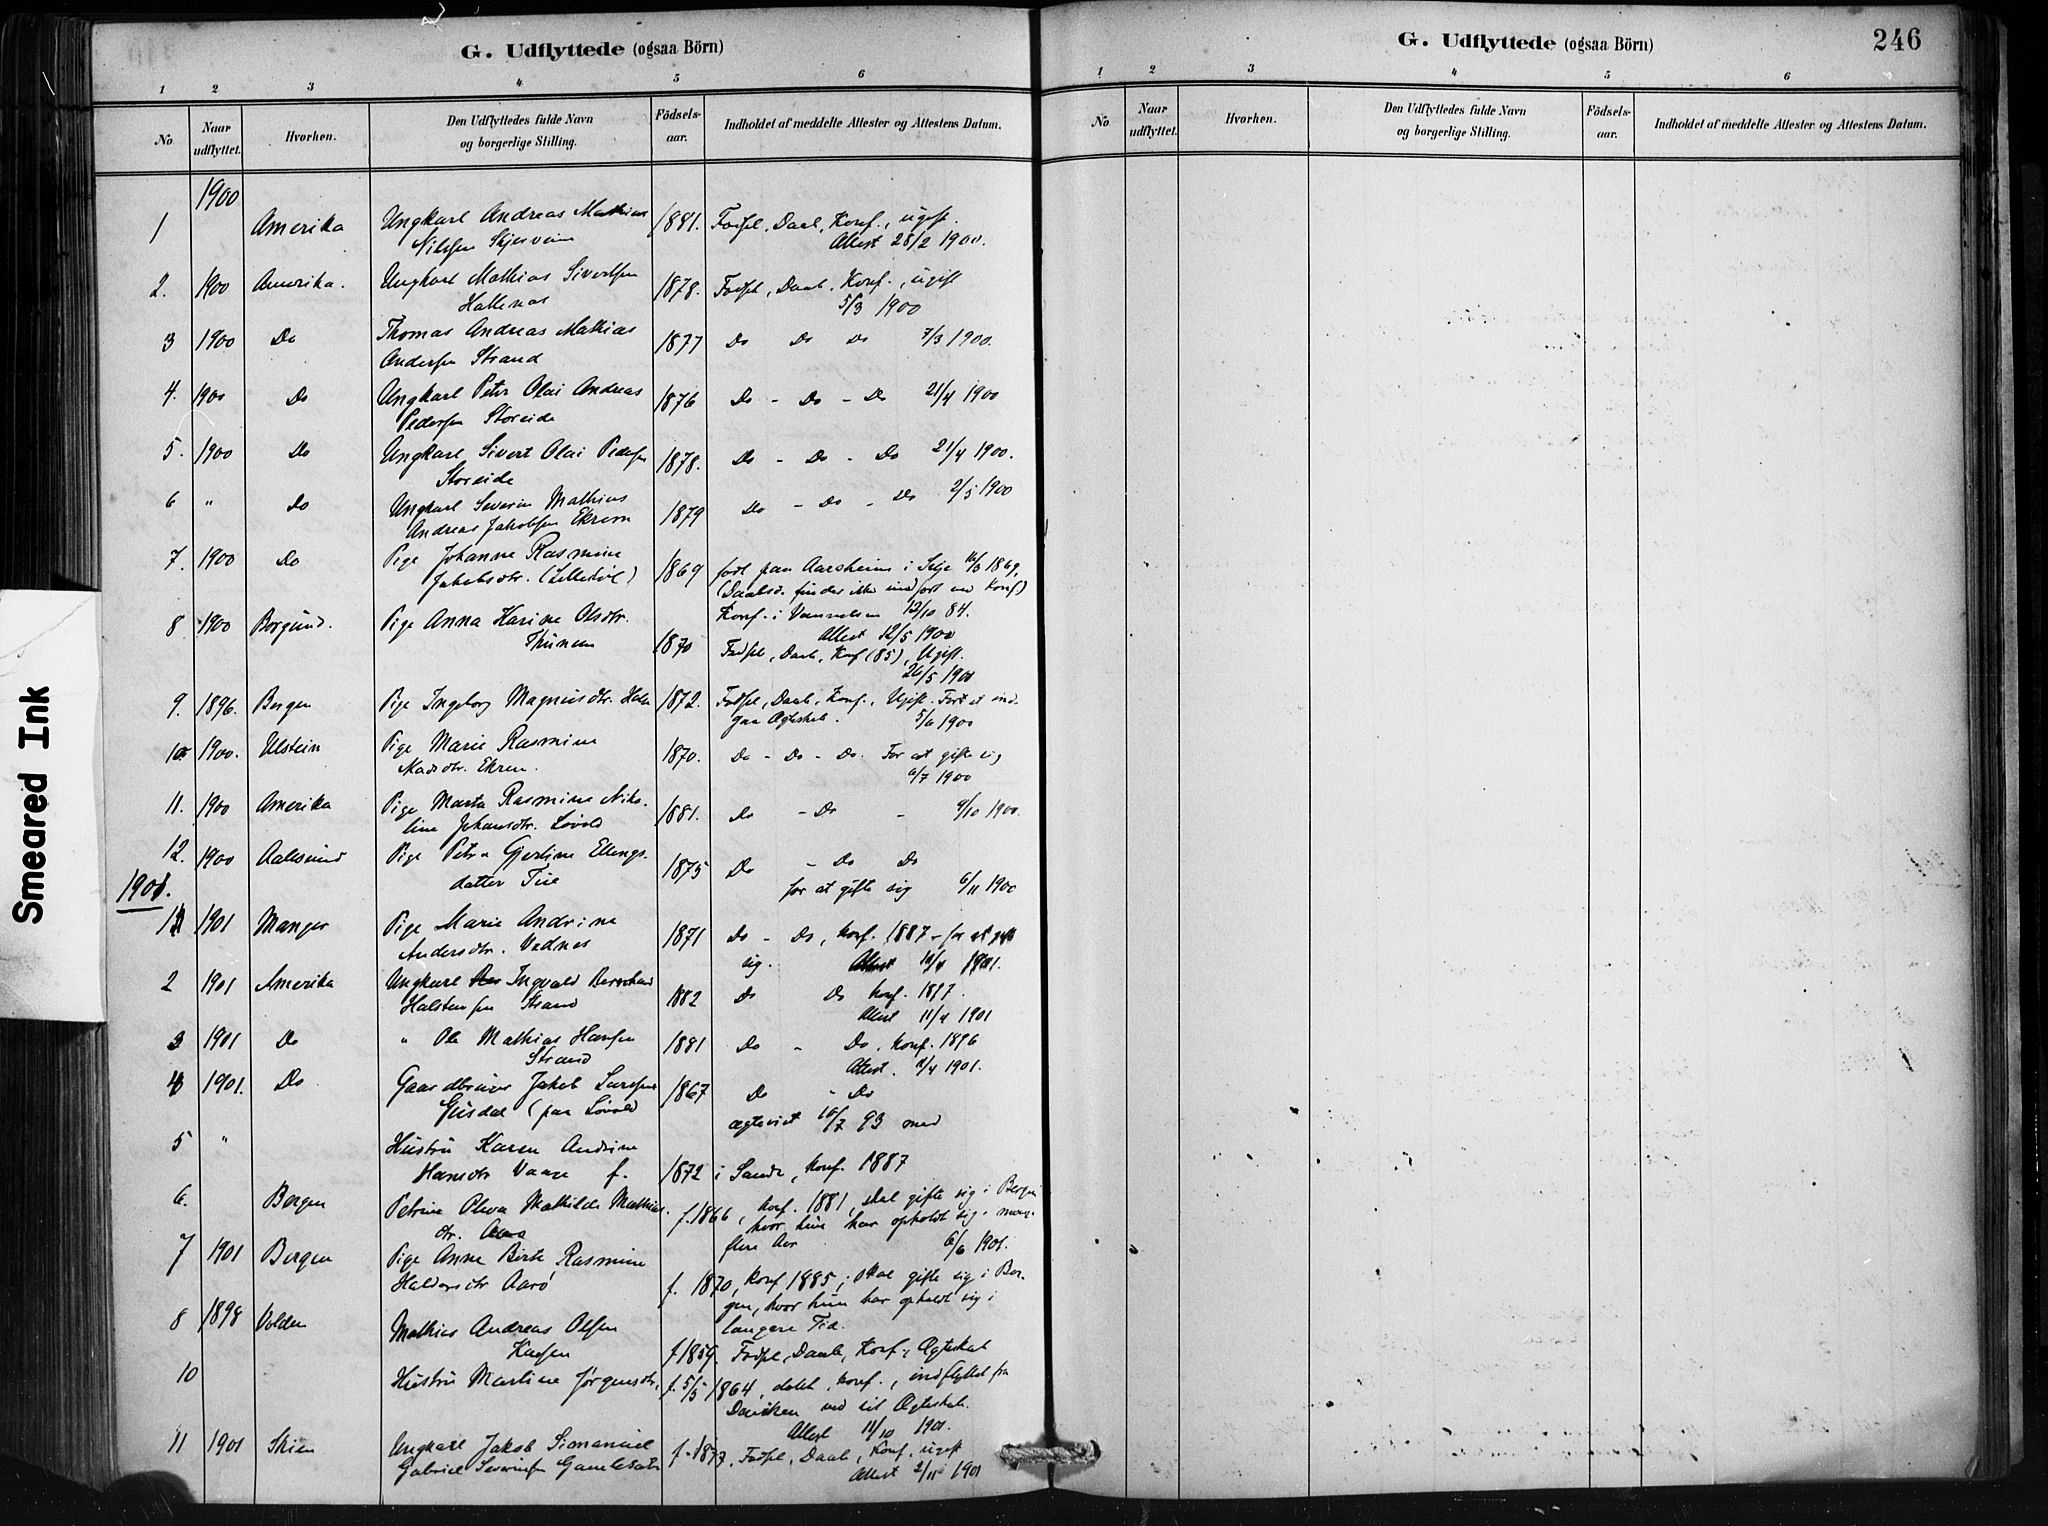 G. Udflyttede (ogsaa Börn)
1 2 3 4 5 6
No
Naar udflyttet.
Hvorhen.
Den Udflyttedes fulde Navn og borgerlige Stilling.
Födsels-aar.
Indholdet af meddelte Attester og Attestens Datum.
1900
1 Amerika Ungkarl Andreas Mathias 1881. Fødsl, Daab, Konf., ugift.
Nilssen Skjersvein Attest 28/2 1900.
2. 1900 Amerika. Ungkarl Mathias Sivertsen 1878. Fødsl, Daab, Konf., ugift
Hallenas 5/3 1900
3 1900 Do Thomas Andreas Mathias 1877 Do Do Do 7/3 1900.
Andersen Strand
4. 1900 Do Ungkarl Peter Olai Andreas 1876 Do - Do - Do 21/4 1900
Pedersen Storeide
5. 1900 Do Ungkarl Sivert Olai Pedersen 1878. Do - Do - Do 21/4 1900.
Storeide
6 " Do Ungkarl Severin Mathias Do - Do - Do 2/5 1900
Andreas Jakobsen Ekrem 1879
7. 1900 Do Pige Johanne Rasmine
Jakobsdtr. 1869 født paa Aarsheim i Selje 1869,
(Daabsd. findes ikke indført ved Konf)
8 1900 Borgund. Pige Anna Karine Olsdtr. Konf. i Vannelven 12/10 84.
Attest 12/5 1900
Thunem 1870 Fødsl, Daab, Konf (85), Ugift.
26/5 1900
9. 1896. Bergen Pige Ingeborg Magnusdtr. 1872. Fødsl, Daab, Konf., Ugift. For at ind-
gaa Ægteskab. 5/6 1900
10 1900. Ulstein Pige Marie Rasmine 1870. Do - Do - Do. For at gifte sig
Madsdtr. Ekrem. 6/7 1900
11. 1900 Amerika Pige Marta Rasmine Niko-
line Johansdtr. Løvold 1881. Do - Do - 9/10 1900.
12. 1900 Aalesund Pige Petra Gjertine Ellings-
datter Tue 1875 Do - Do Do
for at gifte sig 6/11 1900
1901.
1 1901 Manger Pige Marie Andrine 1871 Do - Do, Konf. 1887 - for at gifte
Andersdtr. Vednes sig. Attest 10/4 1901.
2 1901 Amerika Ungkarl Ingvald Bernhard
Halstensen Strand 1882 Do Do Konf. 1897.
Attest 11/4 1901
3 1901 Do " Ole Mathias Hansen 1881 Do - Do, Konf. 1896
Strand Attest. 11/4 1901.
4 1901. Do Gaardbruger Jakob Larssen 1867 Do - Do
Gusdal (paa Løvold ægteviet 10/7 93 med
5 " Hustru Karen Andrine
Hansdtr Vaage f. 1872 i Sande, Konf. 1887
6. Bergen Petrine Oliva Mathilde Mathias- f. 1866, Konf. 1881, skal gifte sig i Bergen
dtr. hvor hun har opholdt sig i mange
flere Aar 6/6 1901.
7 1901 Bergen Pige Anne Berte Rasmine
Haldorsdtr Aarø f. 1870, Konf 1885; skal gifte sig i Ber-
gen, hvor hun har opholdt sig i
længere Tid.
8 1898 Volden Mathias Andreas Olsen
f 1859. Fødsl, Daab, Konf., Ægteskab
10 Hustru Martine Jørgensdtr. f. 5/5 1864, døbt, konf., indflyttet fra
ved sit Ægteskab.
Attest 11/10 1901.
11 1901 Skien Ungkarl Jakob
Gabriel Severinsen Gamlesæter f. 1873. Fødsl, Daab, Konf, ugift
Attest 2/11 1901
Smeared Ink
G. Udflyttede (ogsaa Börn) 246
1 2 3 4 5 6
No
Naar udflyttet.
Hvorhen.
Den Udflyttedes fulde Navn og borgerlige Stilling.
Födsels-aar.
Indholdet af meddelte Attester og Attestens Datum.